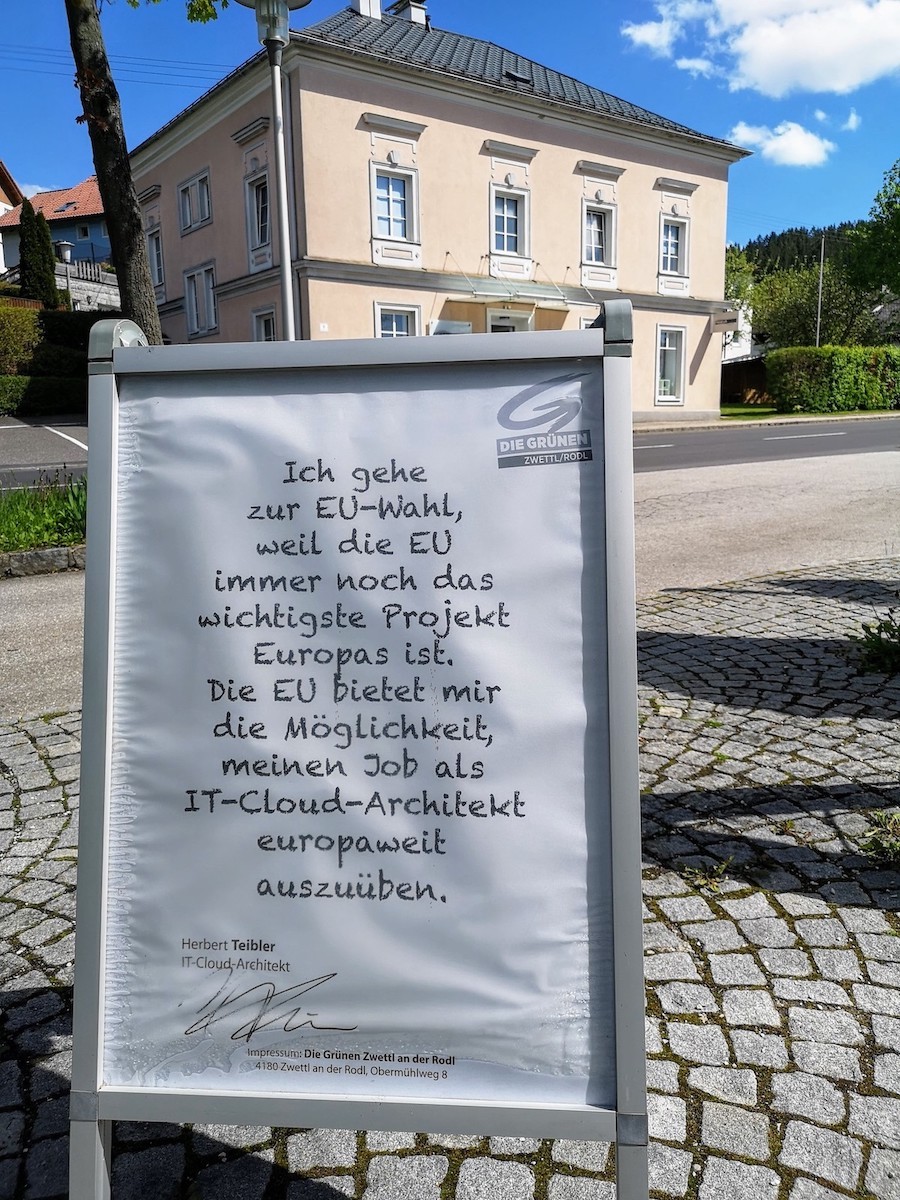 DIE GRÜNEN
ZWETTL/RODL
Ich gehe
zur EU-Wahl,
weil die EU
immer noch das
wichtigste Projekt
Europas ist.
Die EU bietet mir
die Möglichkeit,
meinen Job als
IT-Cloud-Architekt
europaweit
auszuüben.
Herbert Teibler
IT-Cloud-Architekt
Impressum: Die Grünen Zwettl an der Rodl
4180 Zwettl an der Rodl, Obermühlweg 8